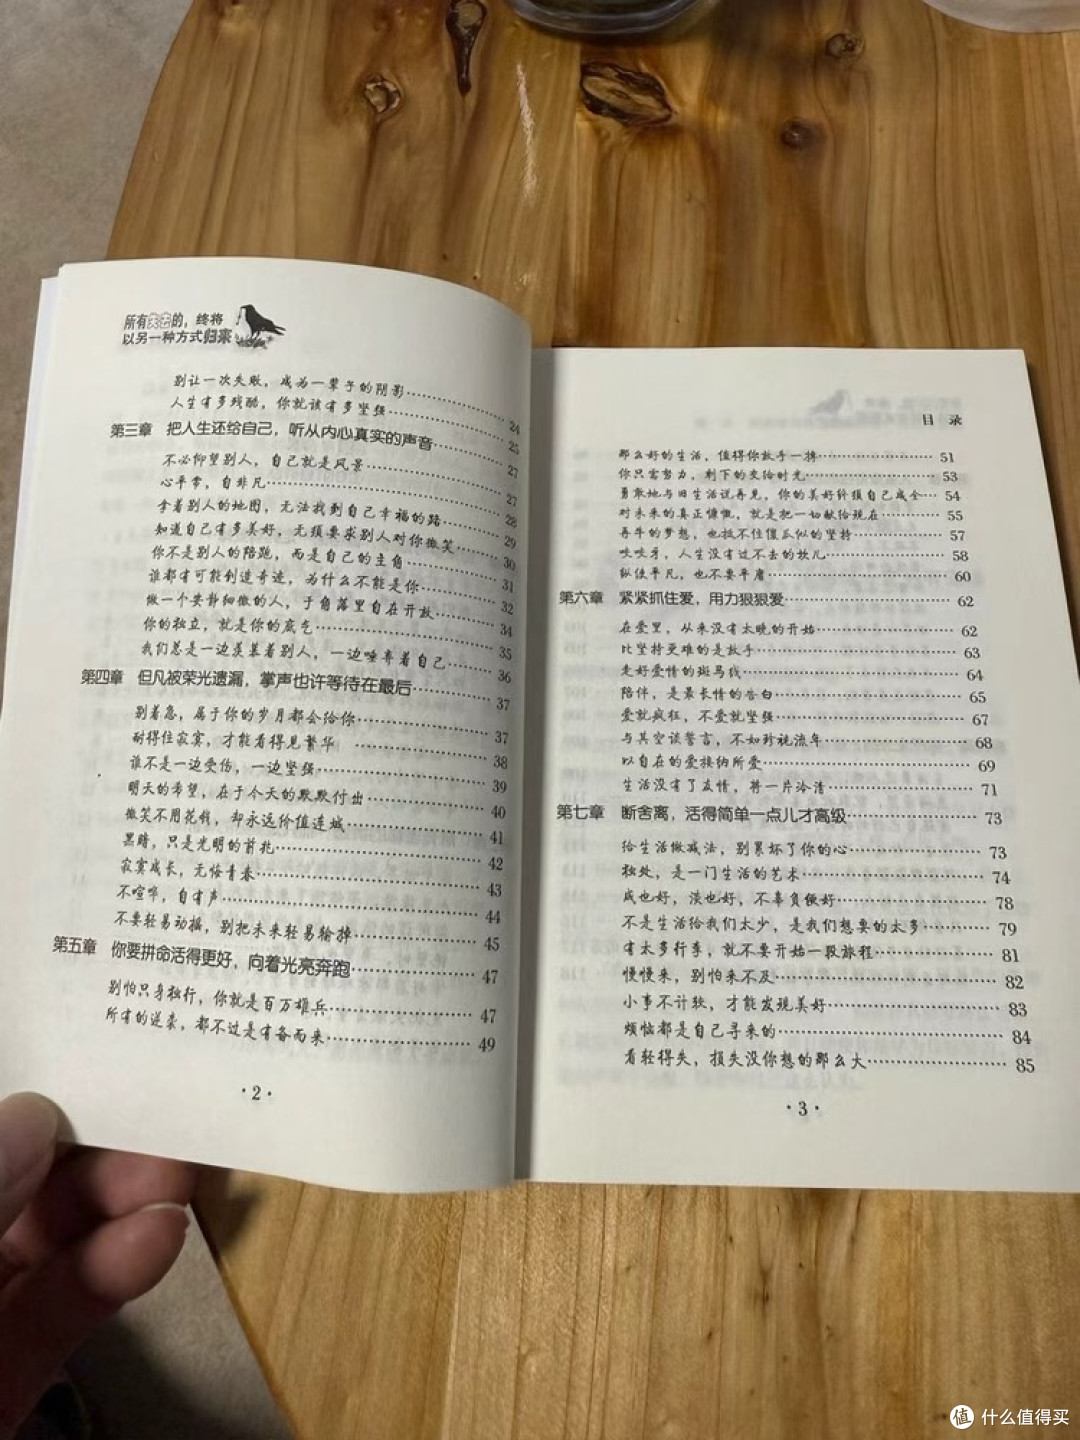 所有失去的，终将
以另一种方式归来
别让一次失败，成为一辈子的阴影……………24
人生有多残酷，你就该有多坚强……………25
第三章 把人生还给自己，听从内心真实的声音……………27
不必仰望别人，自己就是风景……………27
心平常，自非凡……………28
拿着别人的地图，无法找到自己幸福的路……………29
知道自己有多美好，无须要求别人对你微笑……………30
你不是别人的陪跑，而是自己的主角……………31
谁都有可能创造奇迹，为什么不能是你……………32
做一个安静细微的人，于角落里自在开放……………34
你的独立，就是你的底气……………35
我们总是一边羡慕着别人，一边唾弃着自己……………36
第四章 但凡被荣光遗漏，掌声也许等待在最后……………37
别着急，属于你的岁月都会给你……………37
耐得住寂寞，才能看得见繁华……………38
谁不是一边受伤，一边坚强……………39
明天的希望，在于今天的默默付出……………40
微笑不用花钱，却永远价值连城……………41
黑暗，只是光明的前兆……………42
寂寞成长，无悔青春……………43
不喧哗，自有声……………44
不要轻易动摇，别把未来轻易输掉……………45
第五章 你要拼命活得更好，向着光亮奔跑……………47
别怕只身独行，你就是百万雄兵……………47
所有的逆袭，都不过是有备而来……………49
·2·
目 录
那么好的生活，值得你放手一搏……………51
你只需努力，剩下的交给时光……………53
勇敢地与旧生活说再见，你的美好终须自己成全…54
对未来的真正慷慨，就是把一切献给现在……………55
再牛的梦想，也抵不住傻瓜似的坚持……………57
咬咬牙，人生没有过不去的坎儿……………58
纵使平凡，也不要平庸……………60
第六章 紧紧抓住爱，用力狠狠爱……………62
在爱里，从来没有太晚的开始……………62
比坚持更难的是放手……………63
走好爱情的斑马线……………64
陪伴，是最长情的告白……………65
爱就疯狂，不爱就坚强……………67
与其空谈誓言，不如珍视流年……………68
以自在的爱接纳所爱……………69
生活没有了友情，将一片冷清……………71
第七章 断舍离，活得简单一点儿才高级……………73
给生活做减法，别累坏了你的心……………73
独处，是一门生活的艺术……………74
咸也好，淡也好，不辜负便好……………78
不是生活给我们太少，是我们想要的太多……………79
有太多行李，就不要开始一段旅程……………81
慢慢来，别怕来不及……………82
小事不计较，才能发现美好……………83
烦恼都是自己寻来的……………84
看轻得失，损失没你想的那么大……………85
·3·
值 什么值得买